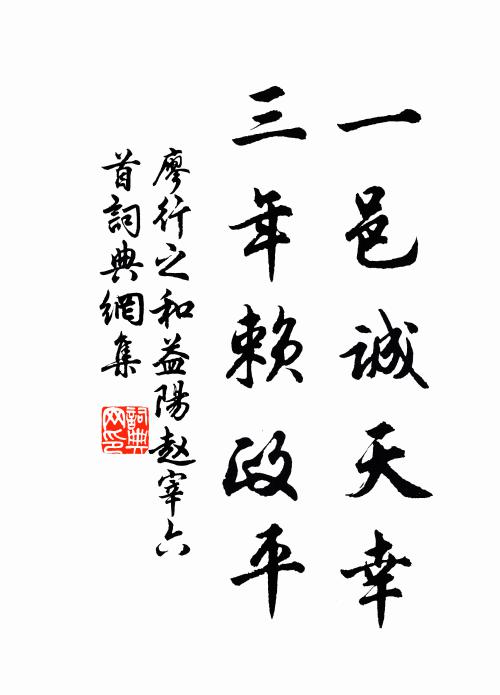 一邑誠天幸
三年賴政平
廖行之和益陽赵宰六
首詞典網集
詞典
网印